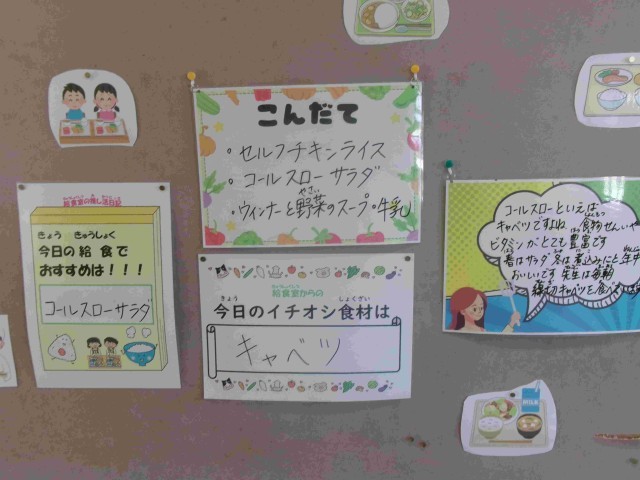 こんだて
・セルフチキンライス
・コールスローサラダ
・ウィンナーと野菜のスープ・牛乳
やさい
給食室の推し活日記
きょう きゅうしょく
今日の給食で
おすすめは！！！
コールスローサラダ
給食室からの
きょう しょくざい
今日のイチオシ食材は
キャベツ
コールスローといえば
キャベツですよね 食物せんいや
ビタミンがとても豊富です
春はサラダ 冬は煮込みにと
おいしいです
キャベツを食べ